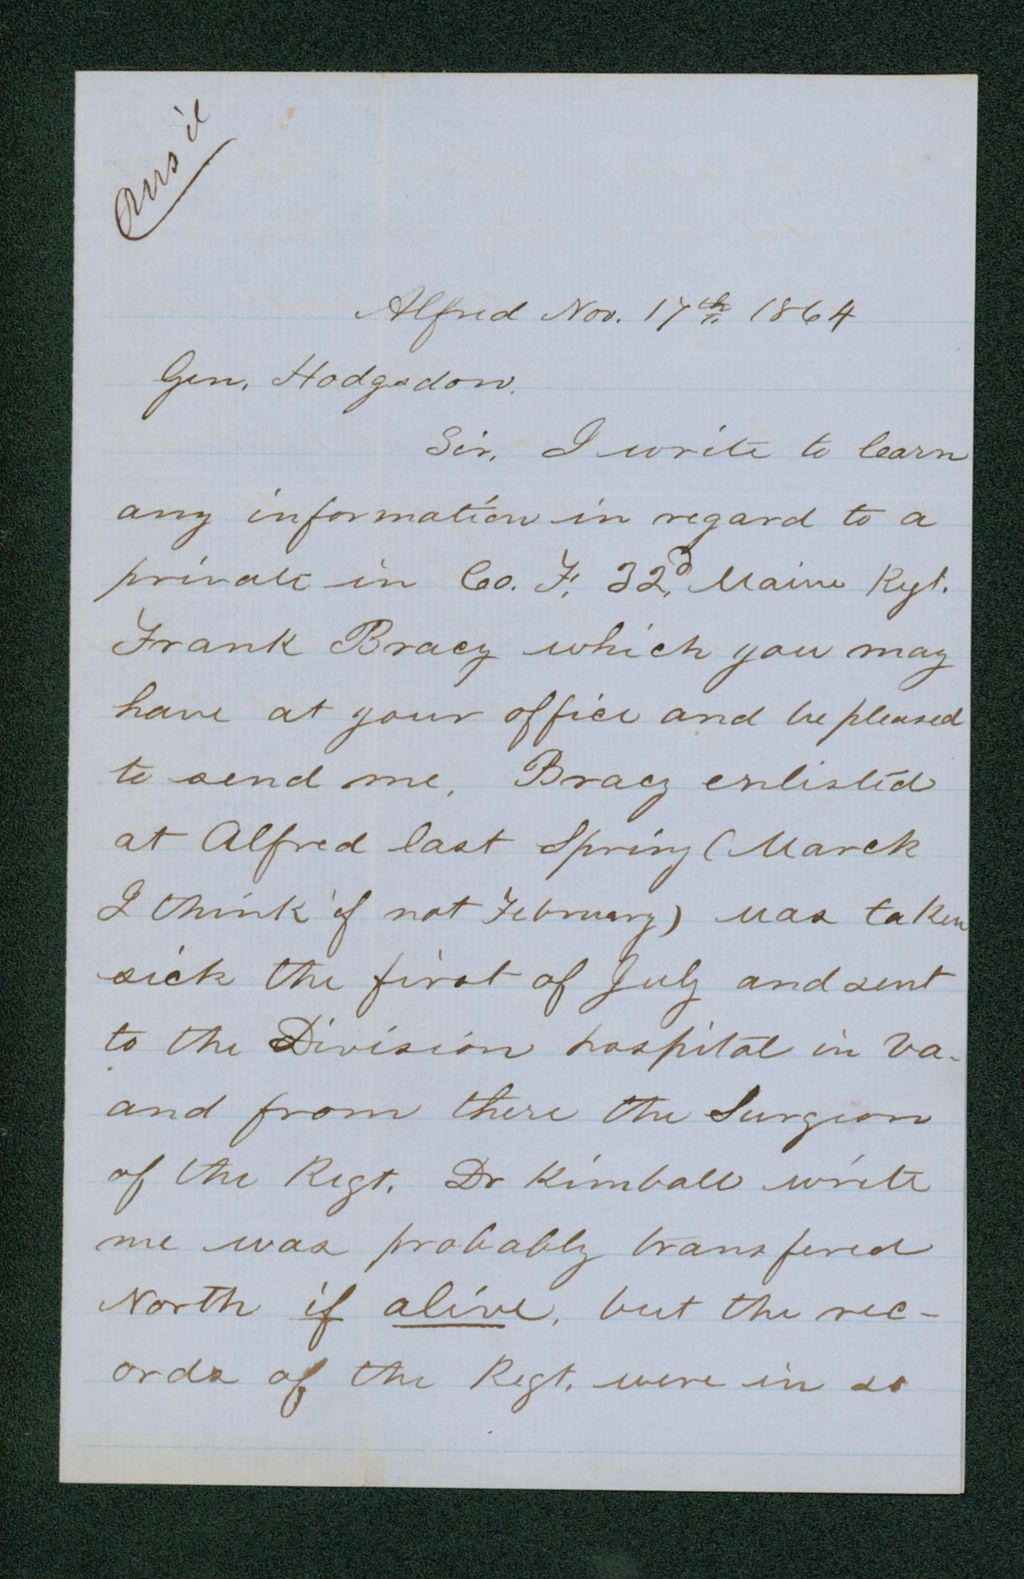 Ans'd
Alfred Nov. 17th 1864
Gen. Hodgsdon.
Sir, I write to learn
any information in regard to a
private in Co. F, 32d, Maine Rgt.
Frank Bracy which you may
have at your office and be pleased
to send me. Bracy enlisted
at Alfred last Spring (March
I think if not February) was taken
sick the first of July and sent
to the Division hospital in Va.
and from there the Surgeon
of the Regt. Dr Kimball write
me was probably transfered
North if alive, but the rec-
ords of the Regt. were in so